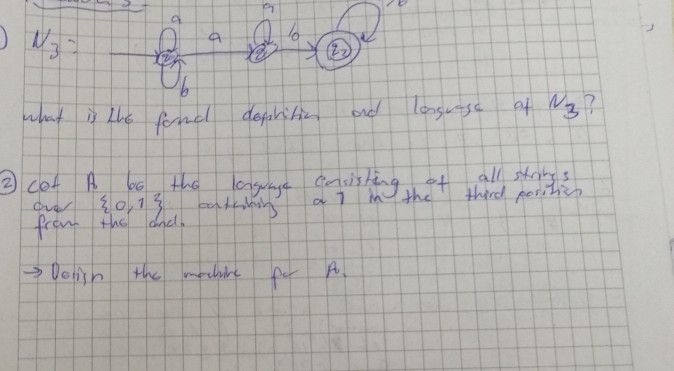 a a b
1) N3 = a b
b
what is the formal definition and language of N3?
2) Let A be the language consisting of all strings
over {0,1} containing a 1 in the third position
from the end.
→ Design the machine for A.